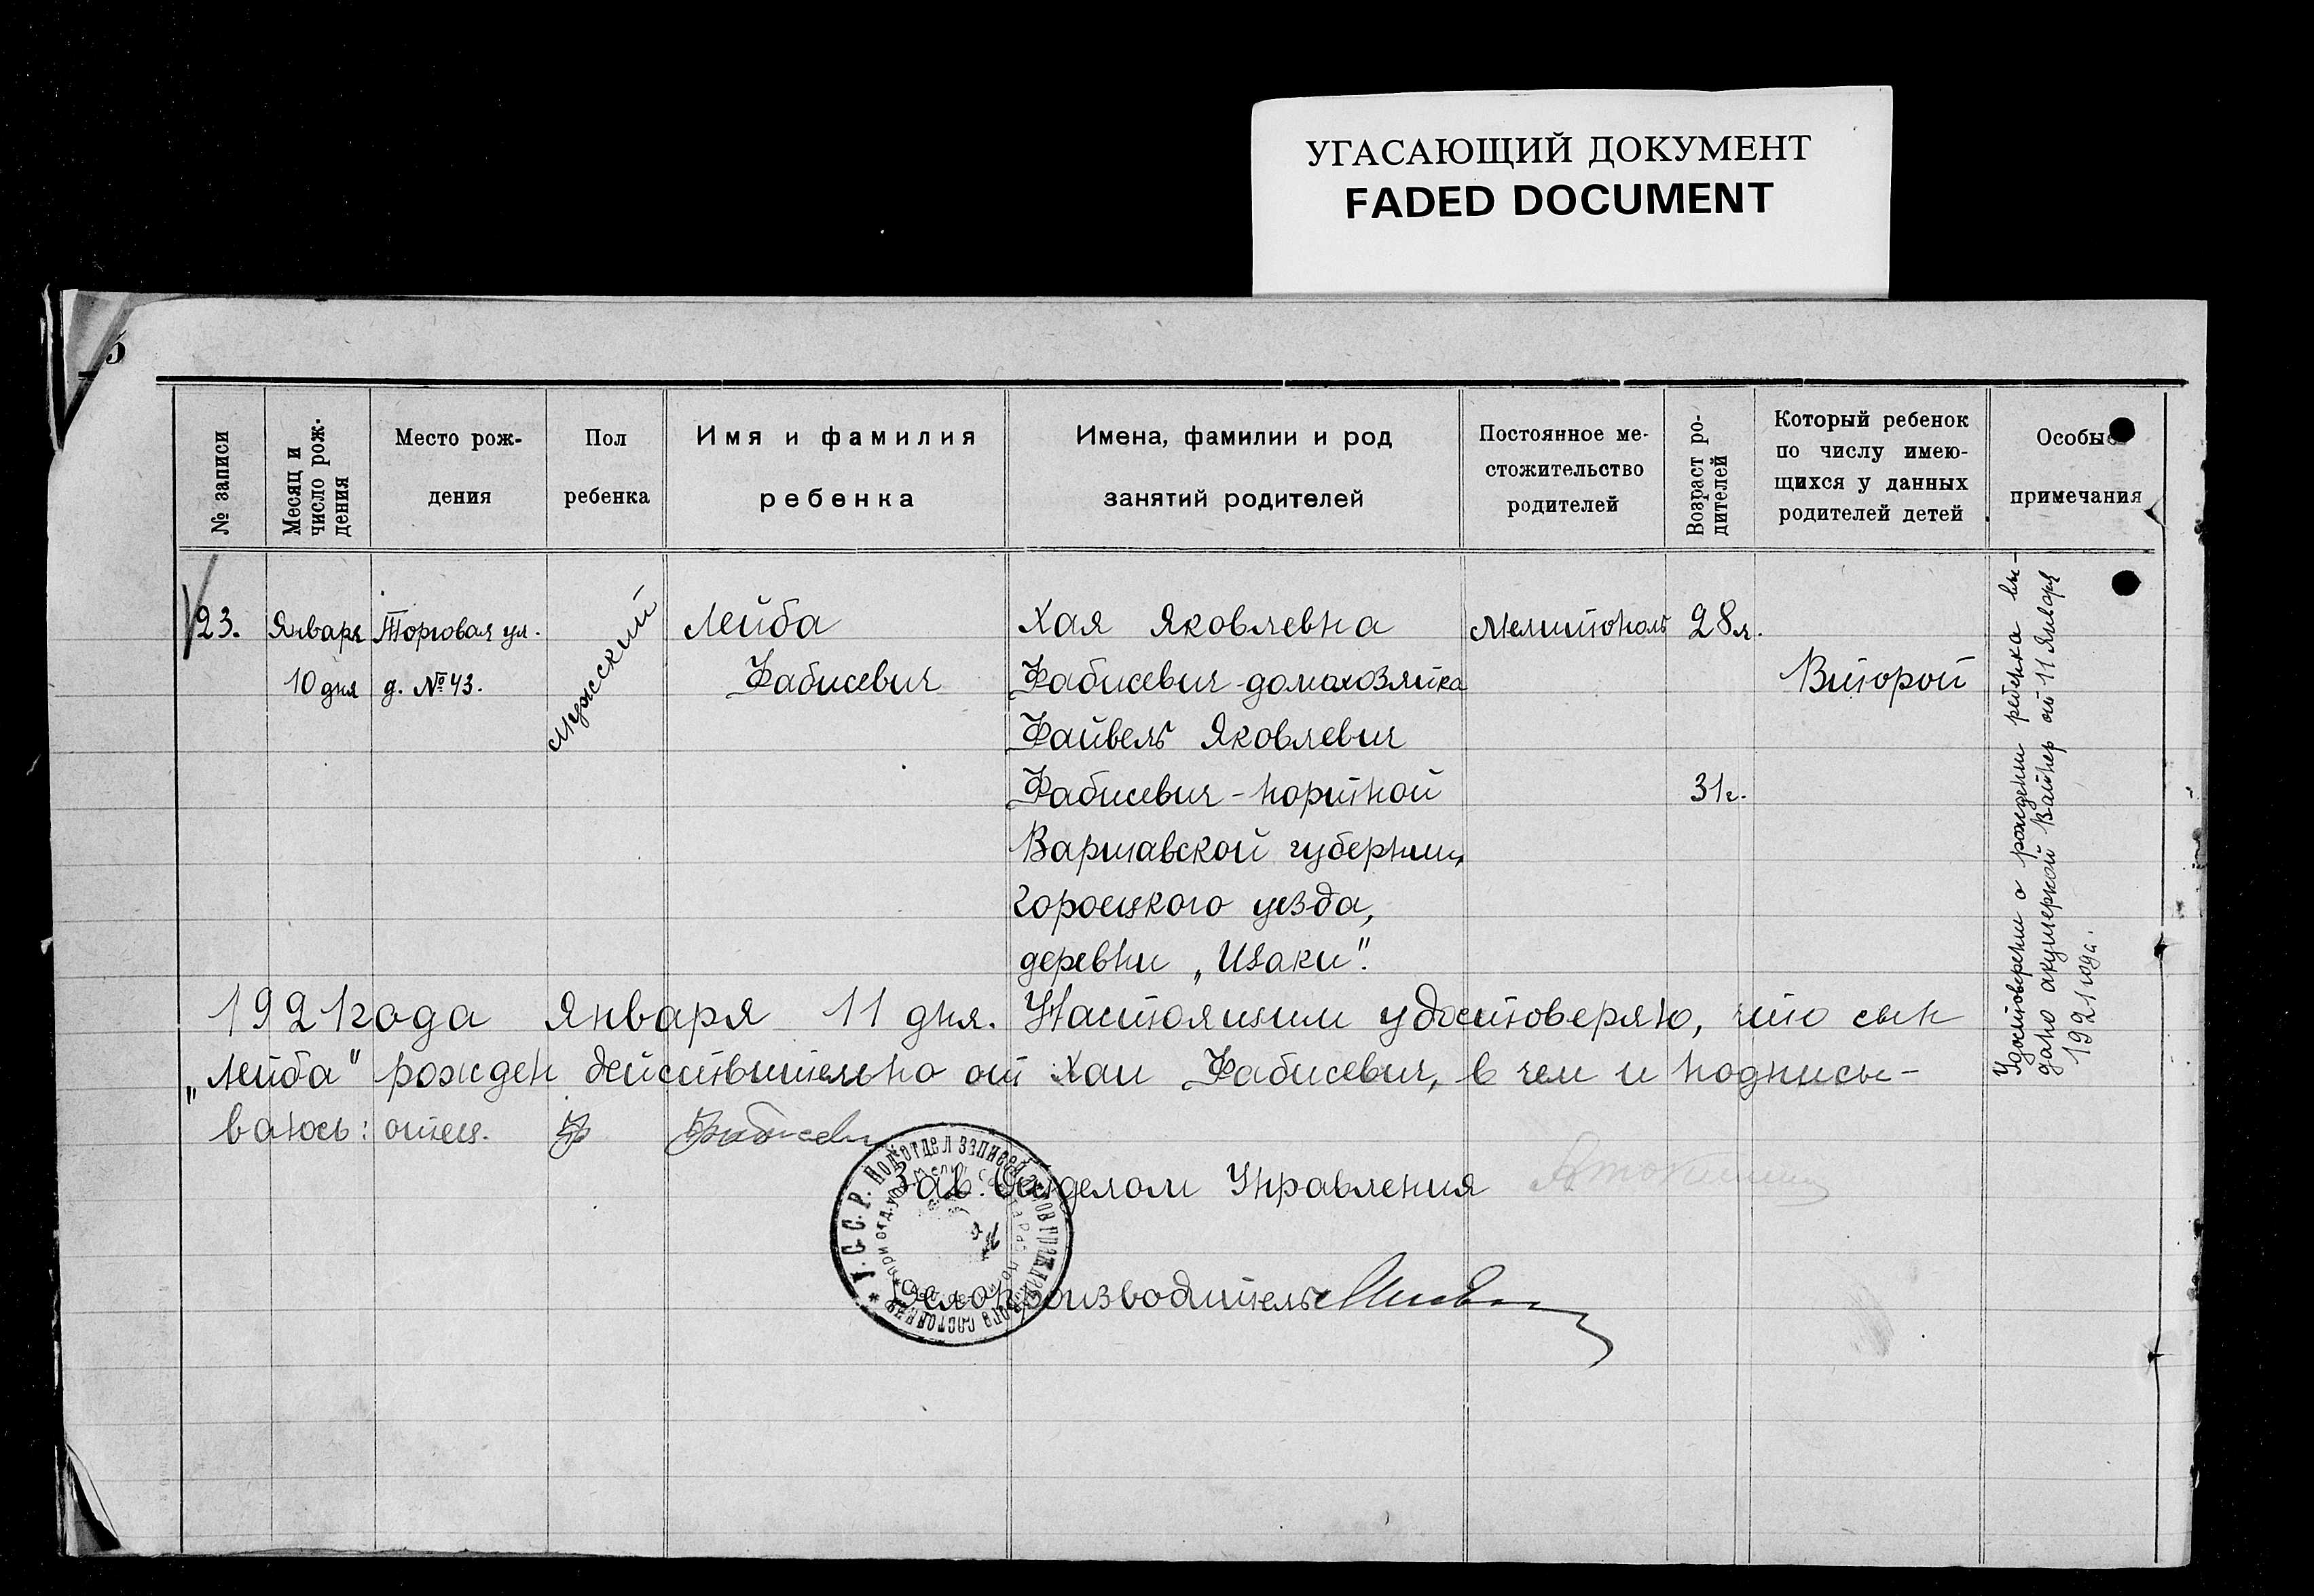 УГАСАЮЩИЙ ДОКУМЕНТ
FADED DOCUMENT
5
№ записи
Месяц и
число рож-
дения
Место рож-
дения
Пол
ребенка
Имя и фамилия
ребенка
Имена, фамилии и род
занятий родителей
Постоянное ме-
стожительство
родителей
Возраст ро-
дителей
Который ребенок
по числу имею-
щихся у данных
родителей детей
Особые
примечания
23.
Января
10 дня
Торговая ул.
д. № 43.
мужский
Лейба
Фабисевич
Хая Яковлевна
Фабисевич - домахозяйка
Файвель Яковлевич
Фабисевич - портной
Варшавской губернии,
деревни „Изаки".
Мелитополь
28 л.
31 г.
Второй
Удостоверени о рождении ребенка вы-
дано акушеркой Вайнер от 11 Января
1921 года.
1921 года Января 11 дня. Настоящим удостоверяю, что сын
„Лейба" рожден действительно от Хаи Фабисевич, в чем и подписы-
ваюсь: отец. Ф Фабисевич
Зав. Отделом Управления
Делопроизводитель
У. С. С. Р. Подотдел записей актов гражданского состояния